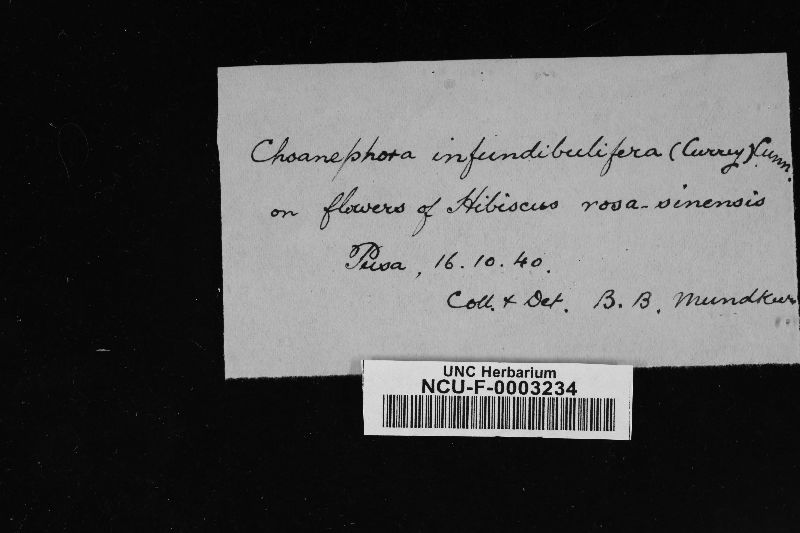 Choanephora infundibulifera (Currey) Cunn.
on flowers of Hibiscus rosa-sinensis
Pusa, 16.10.40.
Coll. & Det. B. B. Mundkur
UNC Herbarium
NCU-F-0003234